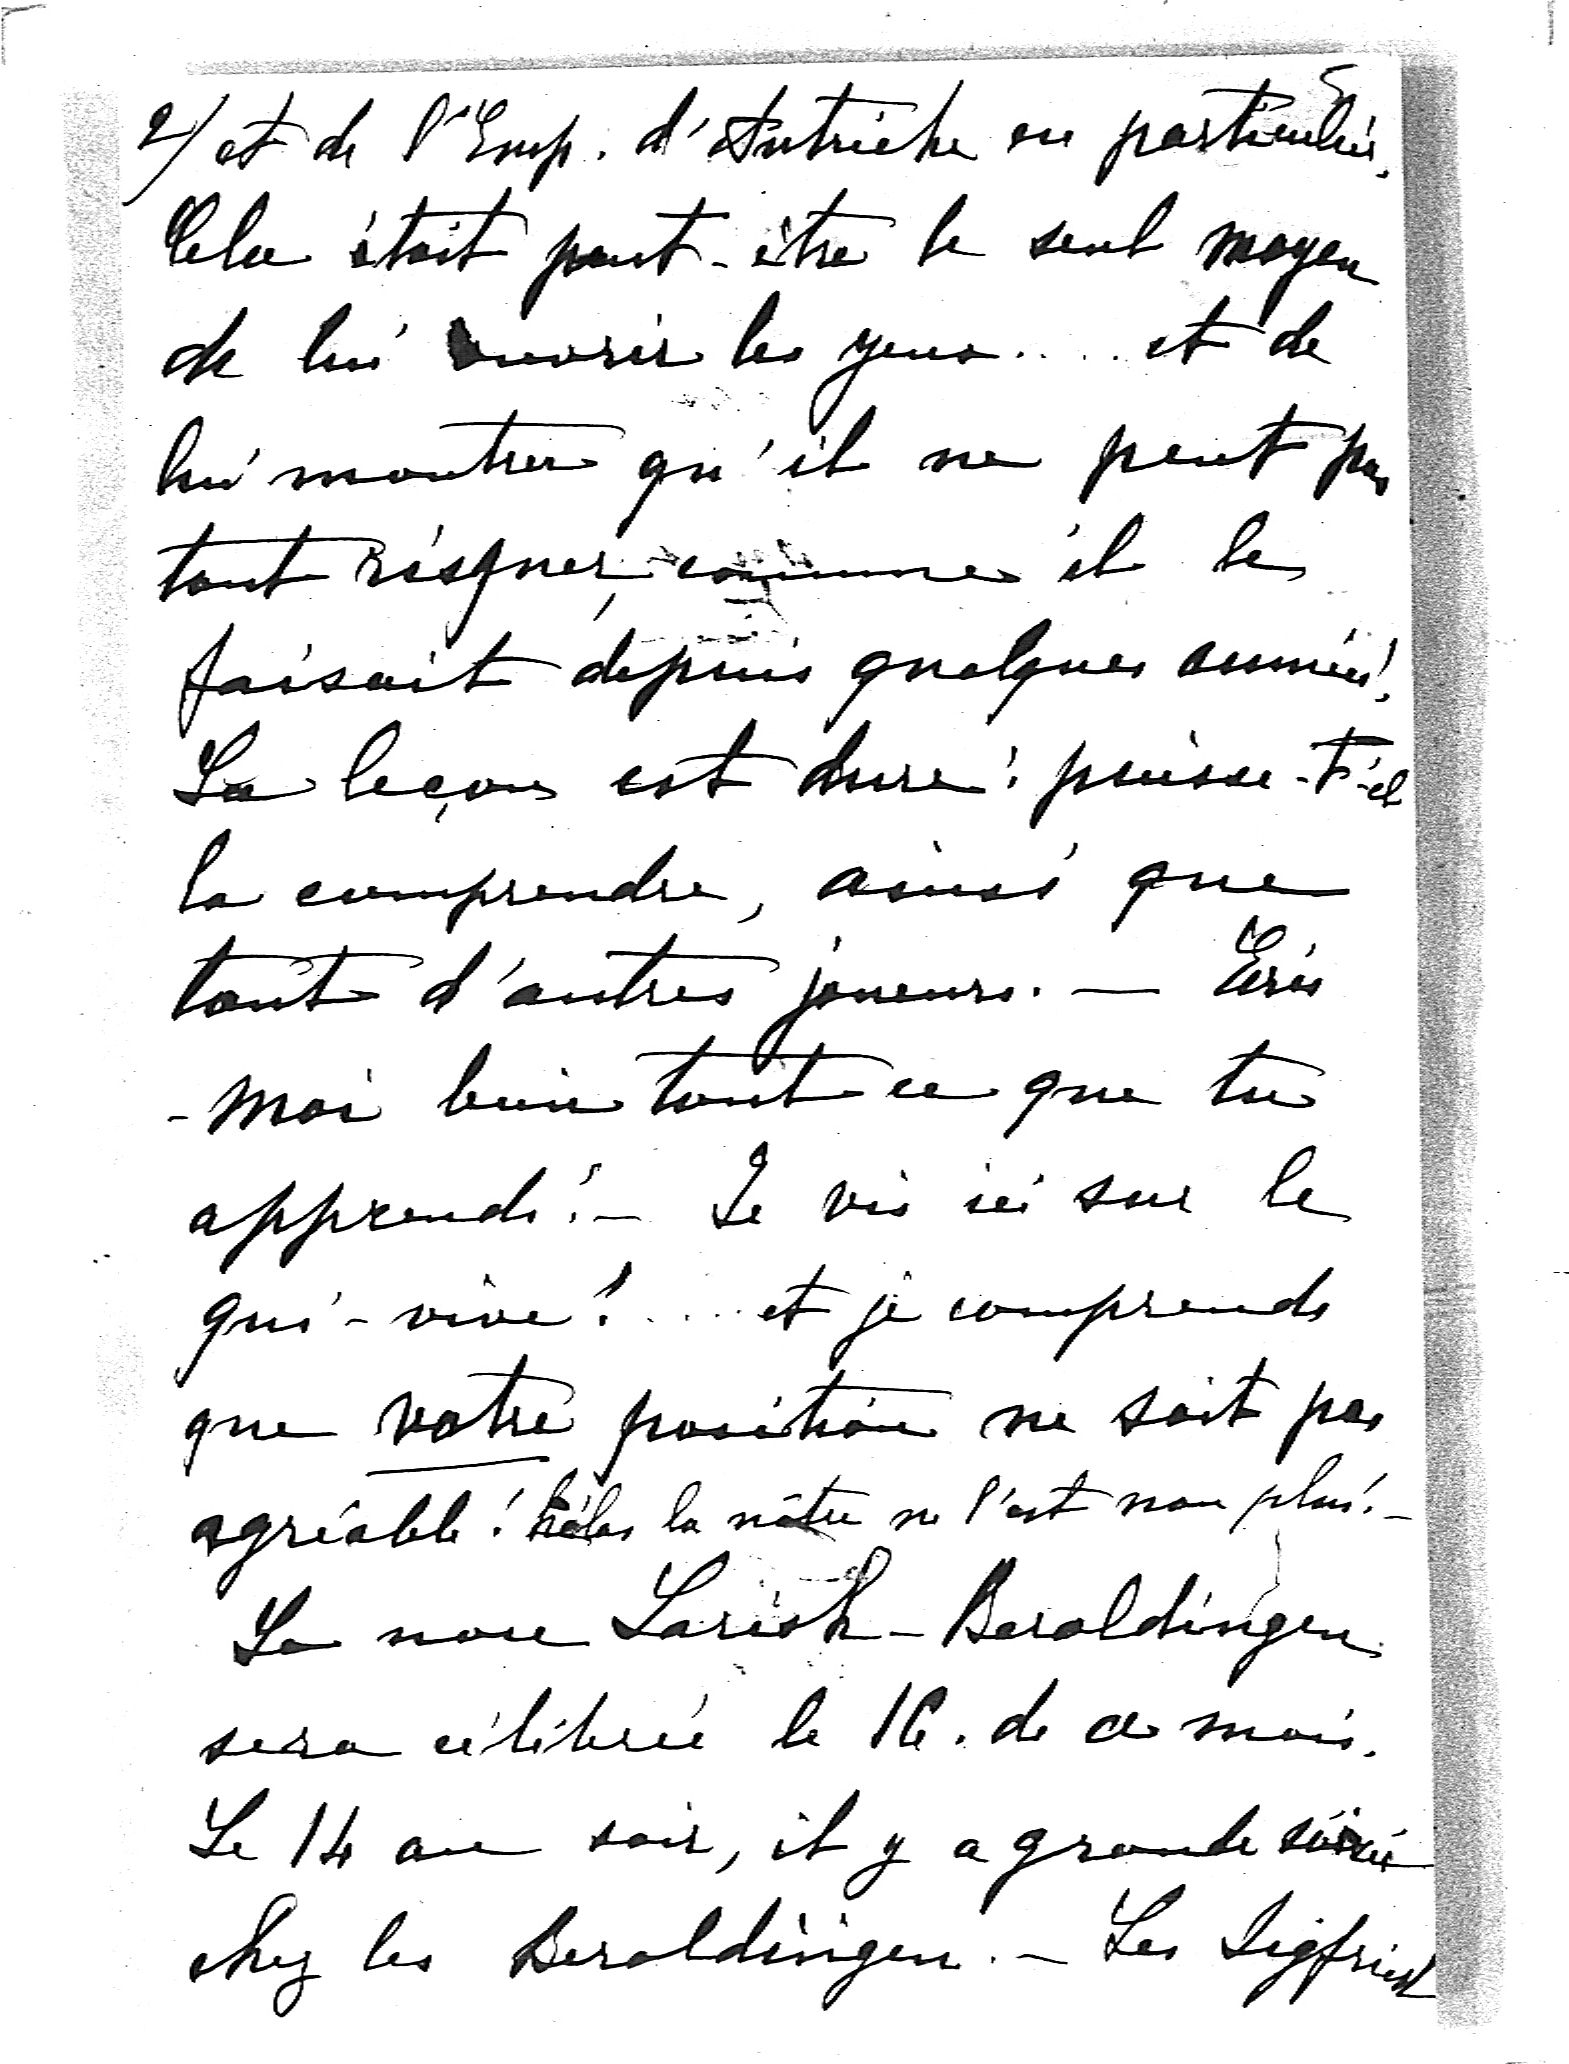 5
2/ et de l'Emp. d'Autriche en particulier.
Cela était peut-être le seul moyen
de lui ouvrir les yeux.... et de
lui montrer qu'il ne peut pas
tout risquer, comme il le
faisait depuis quelques années!
La leçon est dure! puisse-t-il
la comprendre, ainsi que
tant d'autres joueurs. — Ecris
-moi bien tout ce que tu
apprends! — Je vis ici sur le
qui-vive! .... et je comprends
que votre position ne soit pas
agréable! hélas la nôtre ne l'est non plus! —
La noce Larish-Beroldingen
sera célébrée le 16. de ce mois.
Le 14 au soir, il y a grande soirée
chez les Beroldingen. — Les Sigfried